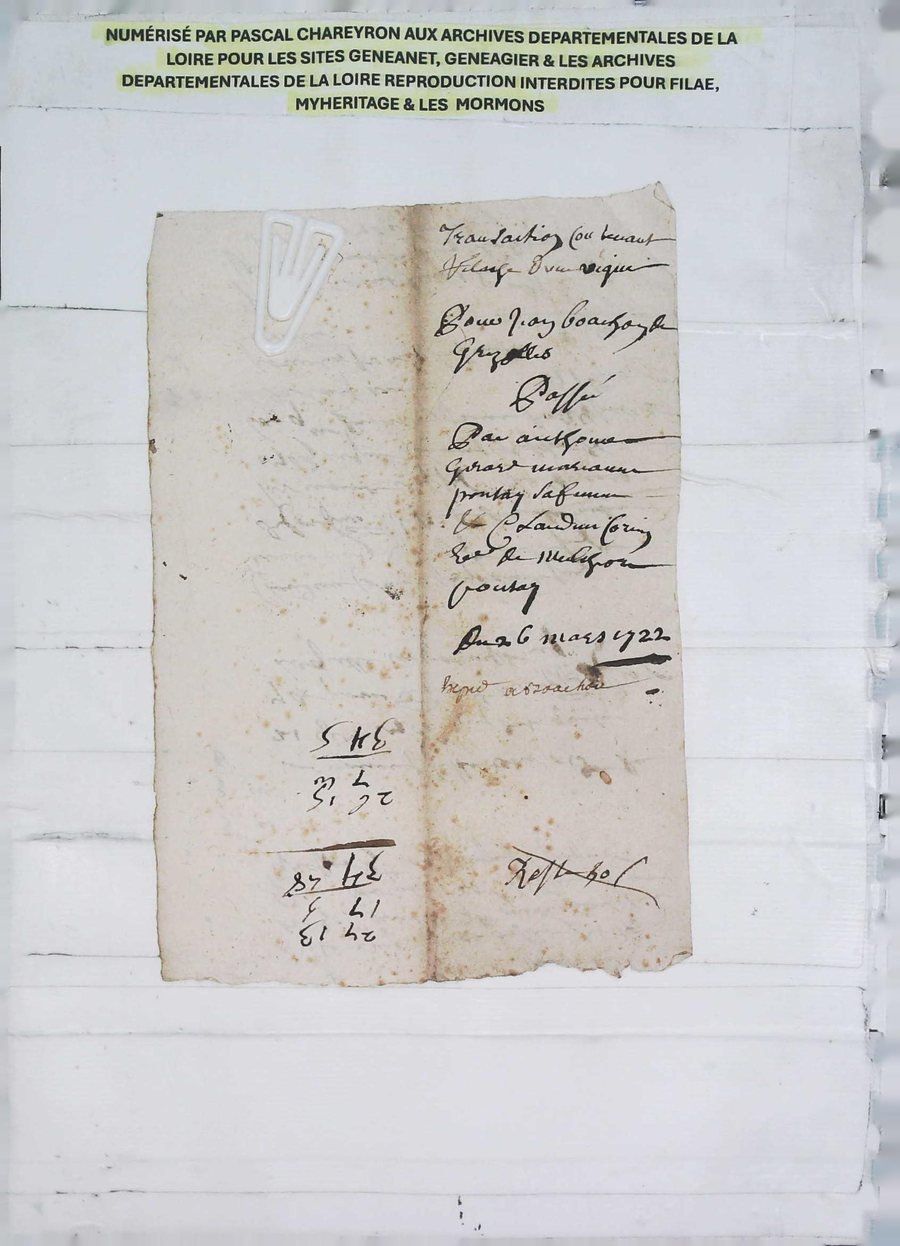 NUMÉRISÉ PAR PASCAL CHAREYRON AUX ARCHIVES DEPARTEMENTALES DE LA
LOIRE POUR LES SITES GENEANET, GENEAGIER & LES ARCHIVES
DEPARTEMENTALES DE LA LOIRE REPRODUCTION INTERDITES POUR FILAE,
MYHERITAGE & LES MORMONS
Transaction Contenant
D'une vigne
Pour Jean boachon de
Grezolles
Passé
Par anthoine
Girard marianne
pontay sa femme
& Claudine
de Melchior
pontay
Du 26 mars 1722
34 5
7
26 15
34
17
27 13